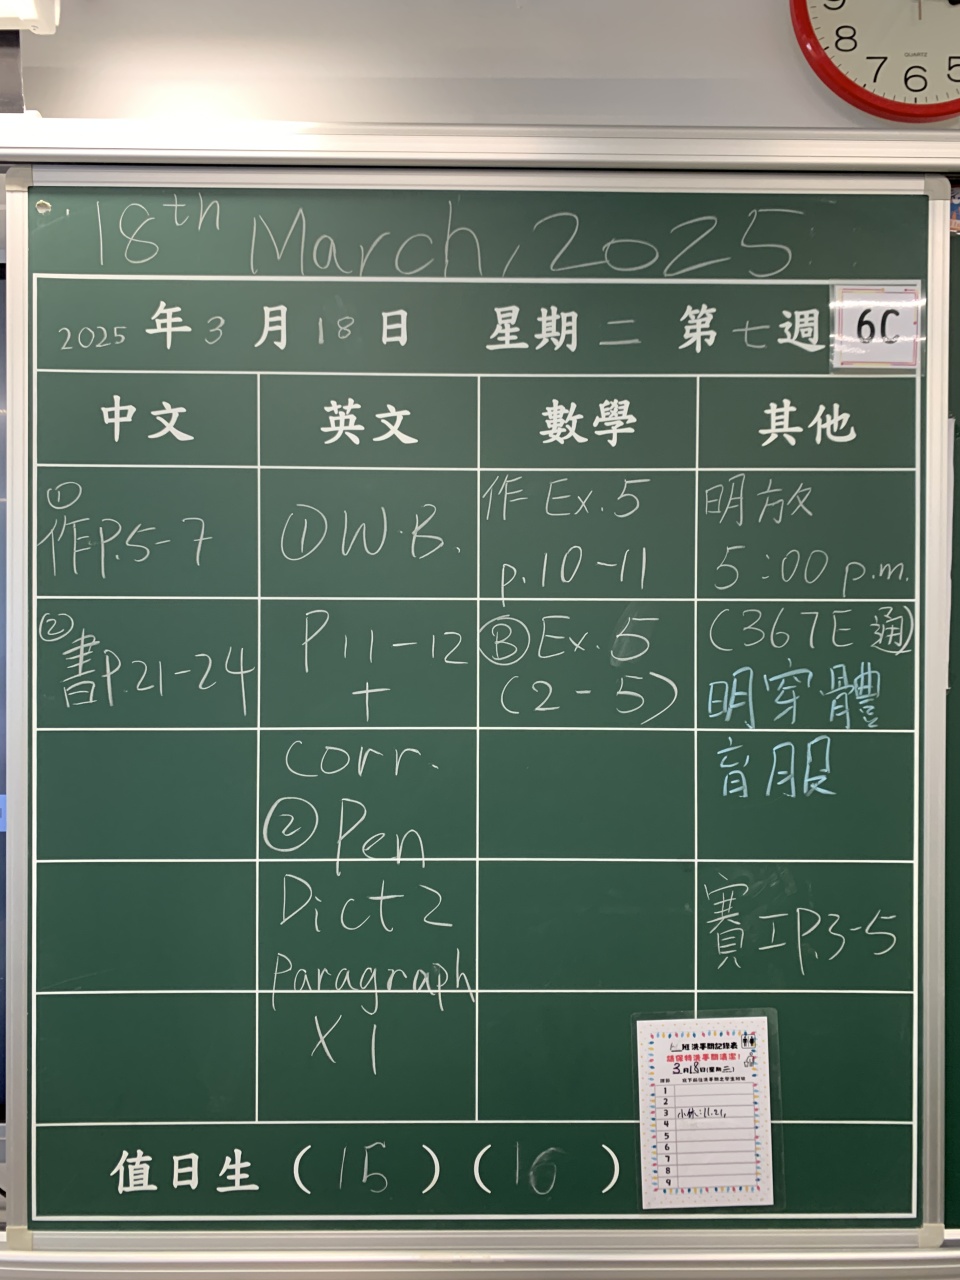 9
8
7
6
5
QUARTZ
18th March, 2025
2025 年 3 月 18 日 星期 二 第 七 週 6C
中文 英文 數學 其他
①
作P.5-7
②
書P.21-24
① W.B.
P 11-12
+
Corr.
② Pen
Dict 2
Paragraph
X 1
作 Ex.5
p.10-11
Ⓑ Ex.5
(2-5)
明放
5:00 p.m.
(367E 通)
明穿體
育服
賽工P.3-5
值日生 (15) (16)
班洗手間記錄表
請保持洗手間清潔!
3月18日(星期二)
1
2
3 小休:11.21,
4
5
6
7
8
9